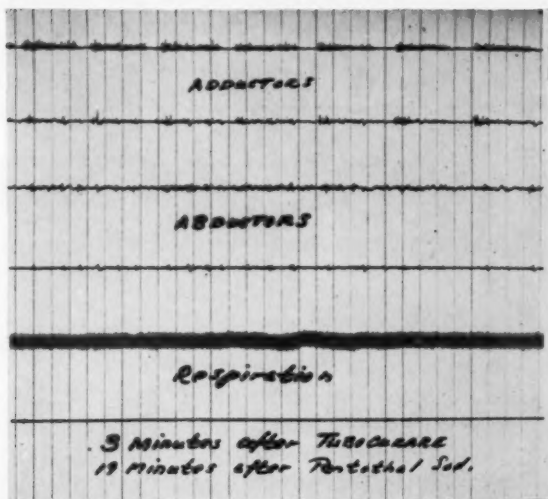 ADDUCTORS
ABDUCTORS
Respiration
3 Minutes after TUBOCURARE
19 Minutes after Pentothal Sod.